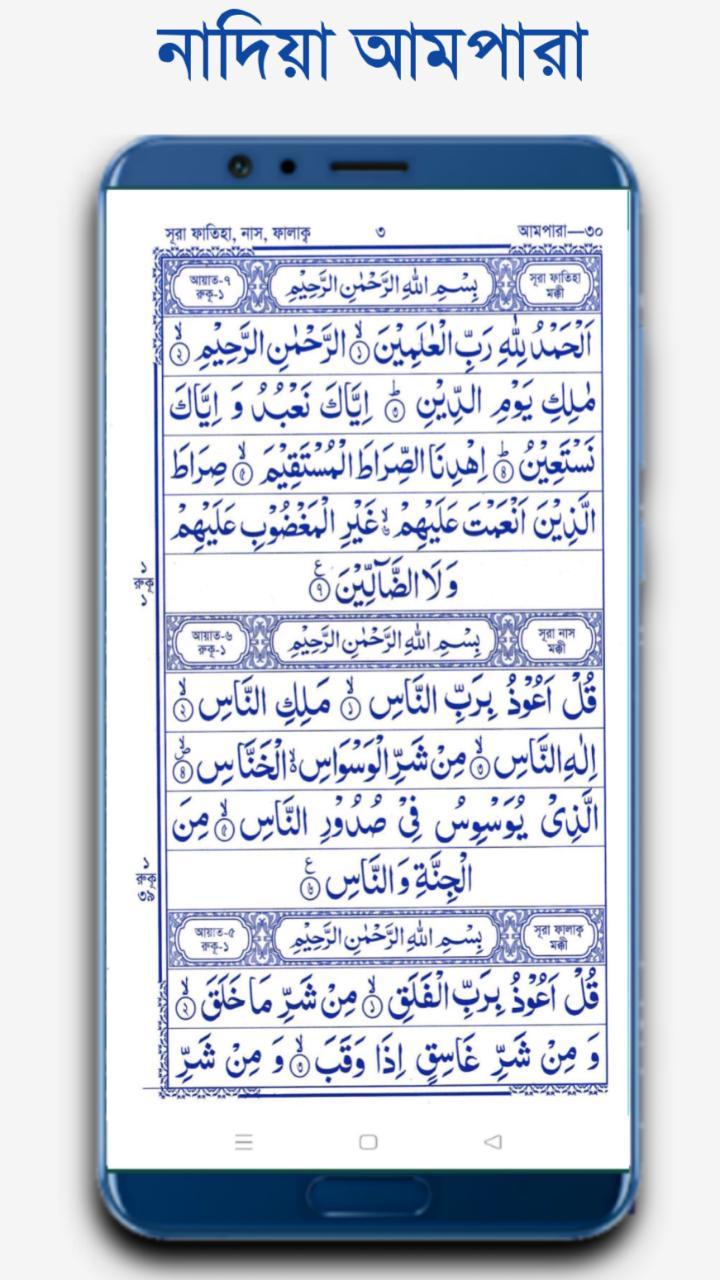 নাদিয়া আমপারা
সূরা ফাতিহা, নাস, ফালাক্ব ৩ আমপারা—৩০
আয়াত-৭ রুকূ-১ بِسْمِ اللهِ الرَّحْمٰنِ الرَّحِيْمِ সূরা ফাতিহা মক্কী
اَلْحَمْدُ لِلّٰهِ رَبِّ الْعٰلَمِيْنَ ۙ﴿১﴾ الرَّحْمٰنِ الرَّحِيْمِ ۙ﴿২﴾
مٰلِكِ يَوْمِ الدِّيْنِ ؕ﴿৩﴾ اِيَّاكَ نَعْبُدُ وَ اِيَّاكَ
نَسْتَعِيْنُ ؕ﴿৪﴾ اِهْدِنَا الصِّرَاطَ الْمُسْتَقِيْمَ ۙ﴿৫﴾ صِرَاطَ
الَّذِيْنَ اَنْعَمْتَ عَلَيْهِمْ ۙ﴿৬﴾ غَيْرِ الْمَغْضُوْبِ عَلَيْهِمْ
وَلَا الضَّآلِّيْنَ ﴿৭﴾ ع
রুকূ ১
আয়াত-৬ রুকূ-১ بِسْمِ اللهِ الرَّحْمٰنِ الرَّحِيْمِ সূরা নাস মক্কী
قُلْ اَعُوْذُ بِرَبِّ النَّاسِ ۙ﴿১﴾ مَلِكِ النَّاسِ ۙ﴿২﴾
اِلٰهِ النَّاسِ ۙ﴿৩﴾ مِنْ شَرِّ الْوَسْوَاسِ ۙ الْخَنَّاسِ ﴿৪﴾
الَّذِىْ يُوَسْوِسُ فِىْ صُدُوْرِ النَّاسِ ۙ﴿৫﴾ مِنَ
الْجِنَّةِ وَ النَّاسِ ﴿৬﴾ ع
১ রুকূ ৩৯
আয়াত-৫ রুকূ-১ بِسْمِ اللهِ الرَّحْمٰنِ الرَّحِيْمِ সূরা ফালাক্ব মক্কী
قُلْ اَعُوْذُ بِرَبِّ الْفَلَقِ ۙ﴿১﴾ مِنْ شَرِّ مَا خَلَقَ ۙ﴿২﴾
وَ مِنْ شَرِّ غَاسِقٍ اِذَا وَقَبَ ۙ﴿৩﴾ وَ مِنْ شَرِّ